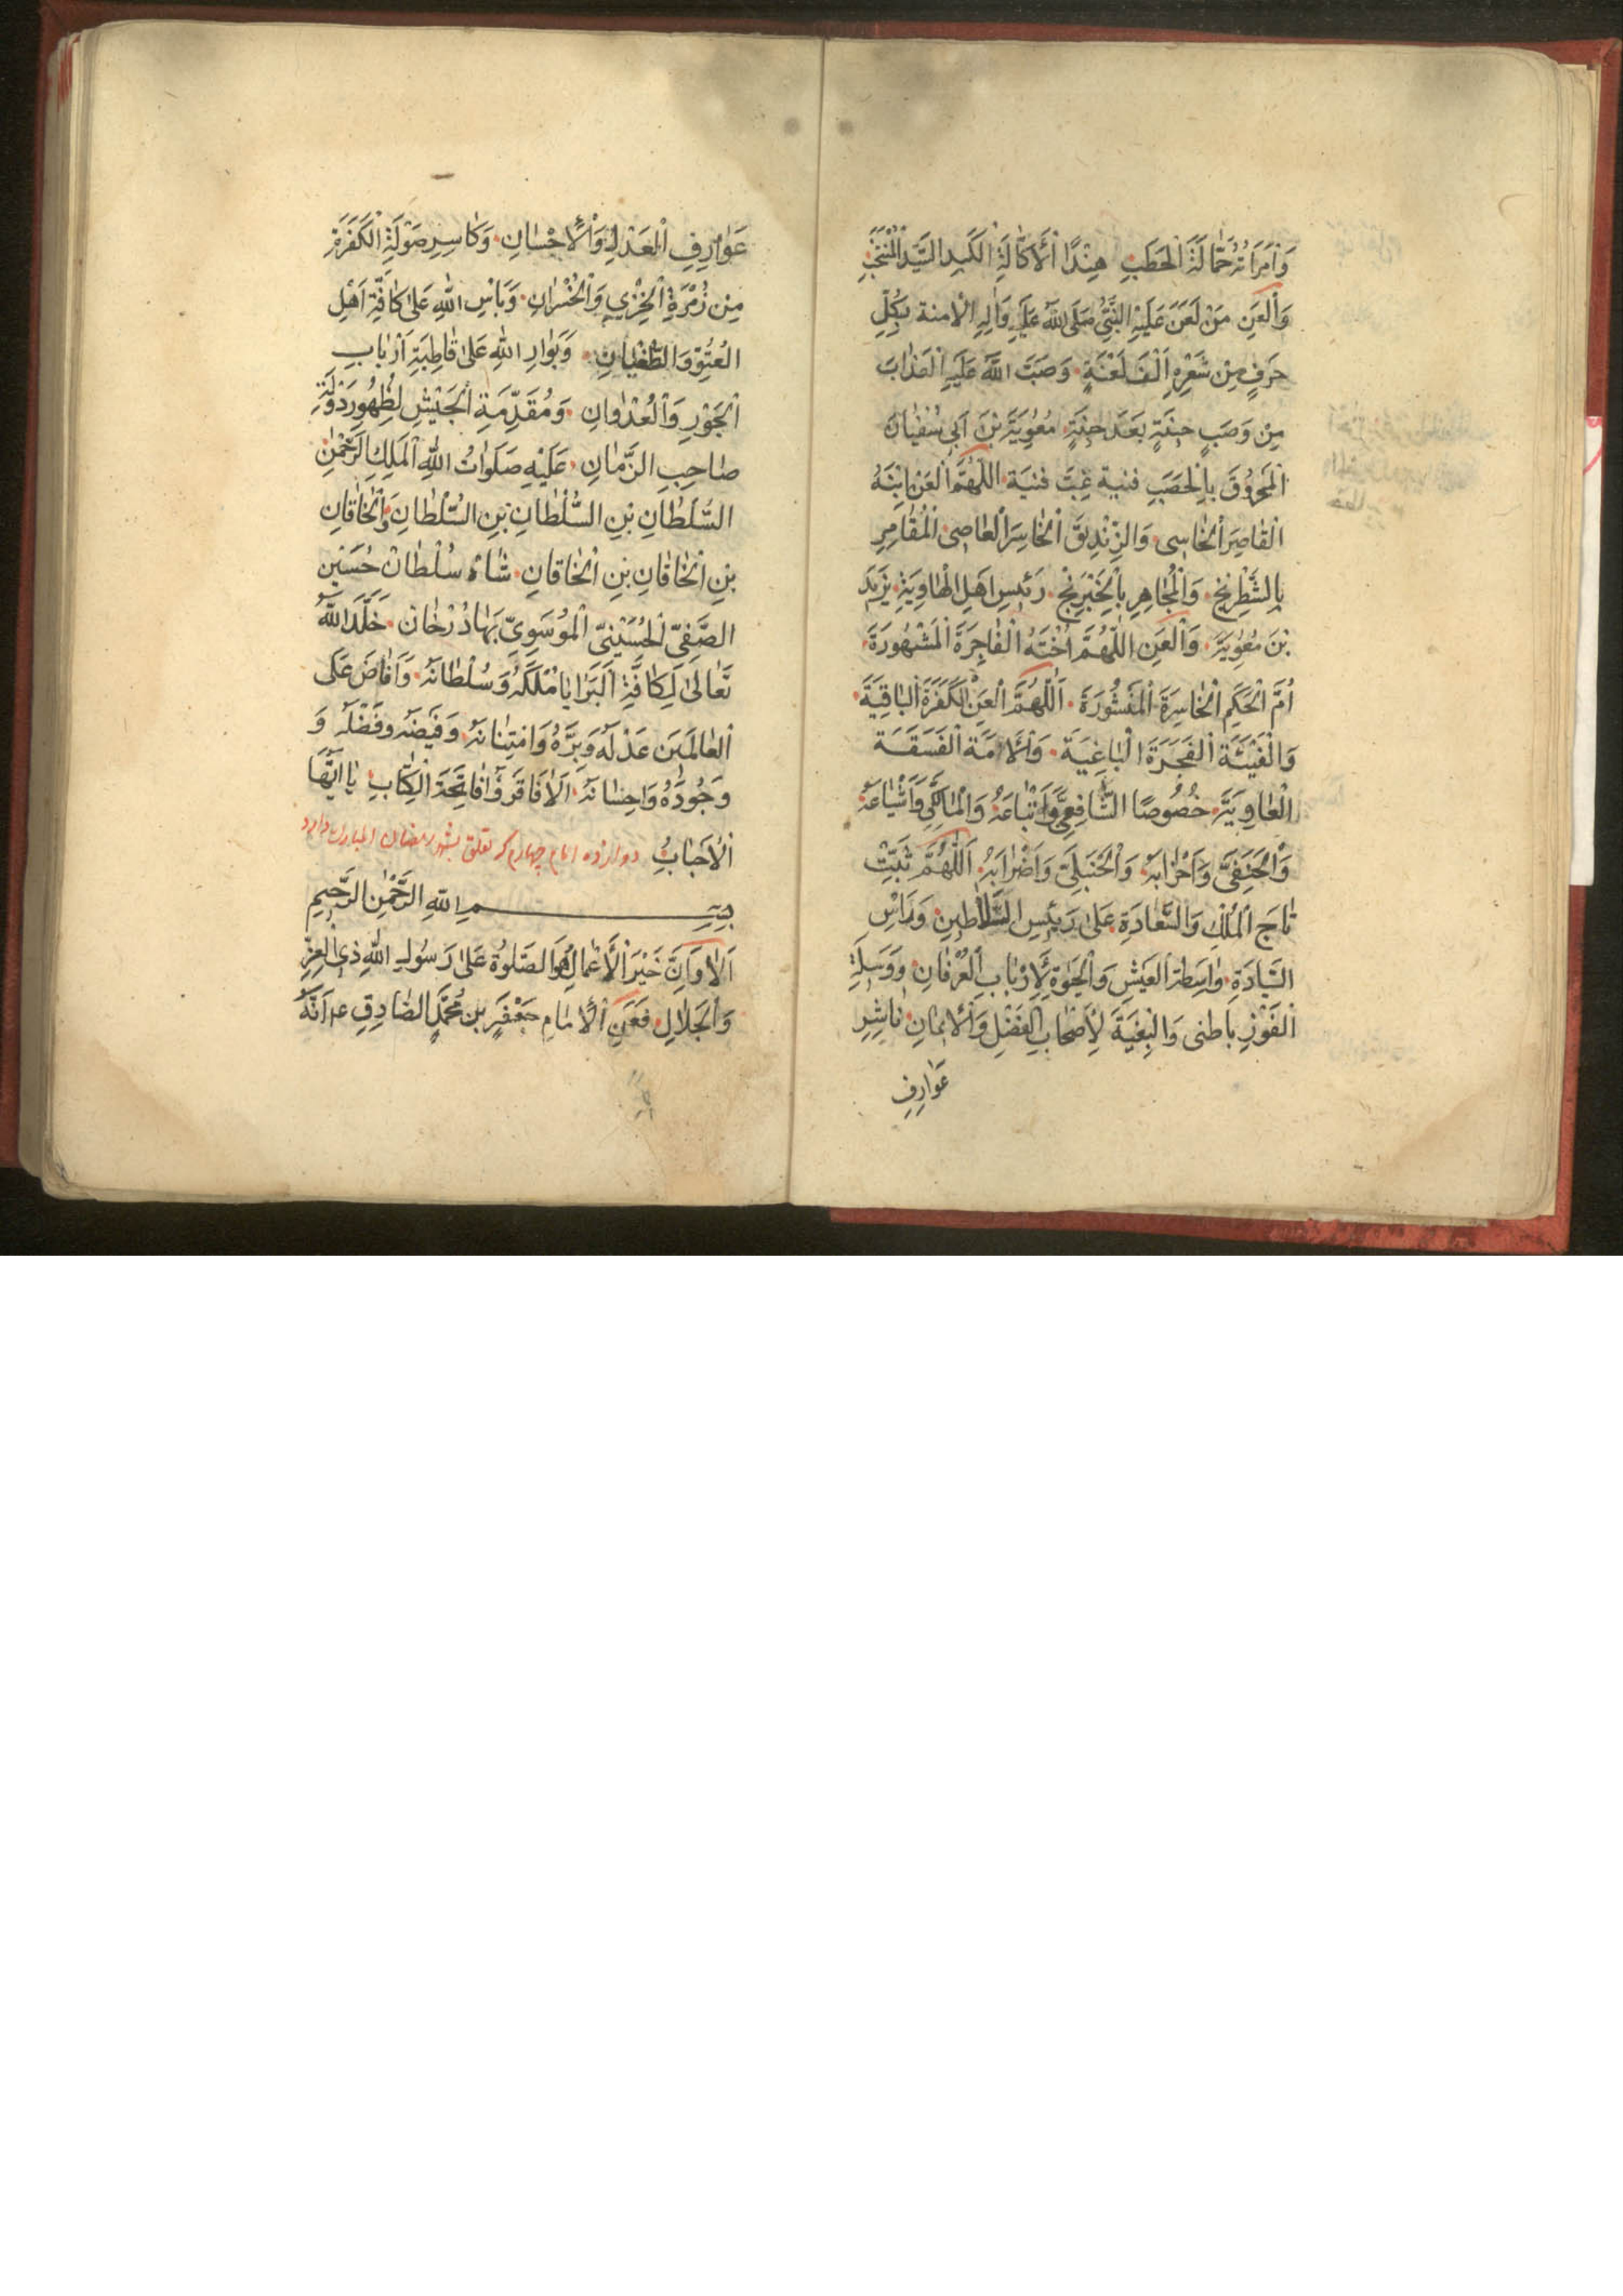 وَامْرَاَتُهُ حَمَّالَةَ الْحَطَبِ هِنْدًا الْاَكَّالَةَ الْكَبِدِ السَّيِّدِ الْمُنْتَجَبِ
وَالْعَنِ مَنْ لَعَنَ عَلَيْهِ النَّبِيُّ صَلَّى اللّٰهُ عَلَيْهِ وَاٰلِهِ الْاَمنة بِكُلِّ
حَرْفٍ مِنْ شَعْرِهِ اَلْفَ لَعْنَةٍ وَصَبَّ اللّٰهُ عَلَيْهِ الْعَذَابَ
مِنْ وَصَبٍ بَعْدَ مُعٰوِيَةَ بْنَ اَبِي سُفْيَانَ
الْمَحْرُوقَ بِالْحَصَبِ اَللّٰهُمَّ الْعَنْ اِبْنَهُ
الْقَاصِرَ الْخَاسِي وَالزِّنْدِيقَ الْخَاسِرَ الْعَاصِيَ الْمُقَامِرِ
بِالشَّطْرَنْجِ وَالْمُجَاهِرِ رَئِيسِ اَهْلِ الْهَاوِيَةِ يَزِيدَ
بْنَ مُعٰوِيَةَ وَالْعَنِ اللّٰهُمَّ اُخْتَهُ الْفَاجِرَةَ الْمَشْهُورَةَ
اُمَّ الْحَكَمِ الْخَاسِرَةَ اَللّٰهُمَّ الْعَنْ الْكَفَرَةَ الْبَاقِيَةَ
وَالْفِئَةَ الْفَجَرَةَ الْبَاغِيَةَ وَالْاُمَّةَ الْفَسَقَةَ
الْعَاوِيَةَ خُصُوصًا الشَّافِعِيَّ وَاَتْبَاعَهُ وَالْمَالِكِيَّ وَاَشْيَاعَهُ
وَالْحَنَفِيَّ وَاَحْزَابَهُ وَالْحَنْبَلِيَّ وَاَضْرَابَهُ اَللّٰهُمَّ ثَبِّتْ
تَاجَ الْمُلْكِ وَالسَّعَادَةِ عَلٰى رَئِيسِ السَّلَاطِينِ وَرَاْسِ
السِّيَادَةِ وَاسِطَةِ الْعَيْشِ وَالْحَيٰوةِ لِاَرْبَابِ الْعُرْفَانِ وَوَسِيلَةِ
الْفَوْزِ وَالْبُغْيَةِ لِاَصْحَابِ الْفَضْلِ وَالْاِيمَانِ نَاشِرِ
عَوَارِفِ
عَوَارِفِ الْعَدْلِ وَالْاِحْسَانِ وَكَاسِرِ صَوْلَةِ الْكَفَرَةِ
مِنْ زُمْرَةِ الْخِزْيِ وَالْخُسْرَانِ وَبَاْسِ اللّٰهِ عَلٰى كَافَّةِ اَهْلِ
الْعُتُوِّ وَالطُّغْيَانِ وَبَوَارِ اللّٰهِ عَلٰى قَاطِبَةِ اَرْبَابِ
الْجَوْرِ وَالْعُدْوَانِ وَمُقَدِّمَةِ الْجَيْشِ لِظُهُورِ دَوْلَةِ
صَاحِبِ الزَّمَانِ عَلَيْهِ صَلَوَاتُ اللّٰهِ الْمَلِكِ الرَّحْمٰنِ
السُّلْطَانِ بْنِ السُّلْطَانِ بْنِ السُّلْطَانِ وَالْخَاقَانِ
بْنِ الْخَاقَانِ بْنِ الْخَاقَانِ شَاهْ سُلْطَانْ حُسَيْنِ
الصَّفِيِّ الْحُسَيْنِيِّ الْمُوسَوِيِّ بَهَادُرْخَانْ خَلَّدَ اللّٰهُ
تَعَالٰى لِكَافَّةِ الْبَرَايَا مُلْكَهُ وَسُلْطَانَهُ وَاَفَاضَ عَلَى
الْعَالَمِينَ عَدْلَهُ وَبِرَّهُ وَامْتِنَانَهُ وَفَيْضَهُ وَفَضْلَهُ وَ
وَجُودَهُ وَاِحْسَانَهُ اَلَا فَاقْرَؤُا فَاتِحَةَ الْكِتَابِ يَا اَيُّهَا
الْاَحْبَابُ دوازده امام چهارم كه تعلق بشهر رمضان المبارك دارد
بِسْمِ اللّٰهِ الرَّحْمٰنِ الرَّحِيمِ
اَلَا وَاِنَّ خَيْرَ الْاَعْمَالِ هُوَ الصَّلٰوةُ عَلٰى رَسُولِ اللّٰهِ ذِي الْعِزِّ
وَالْجَلَالِ فَعَنِ الْاِمَامِ جَعْفَرِ بْنِ مُحَمَّدٍ الصَّادِقِ ع اَنَّهُ